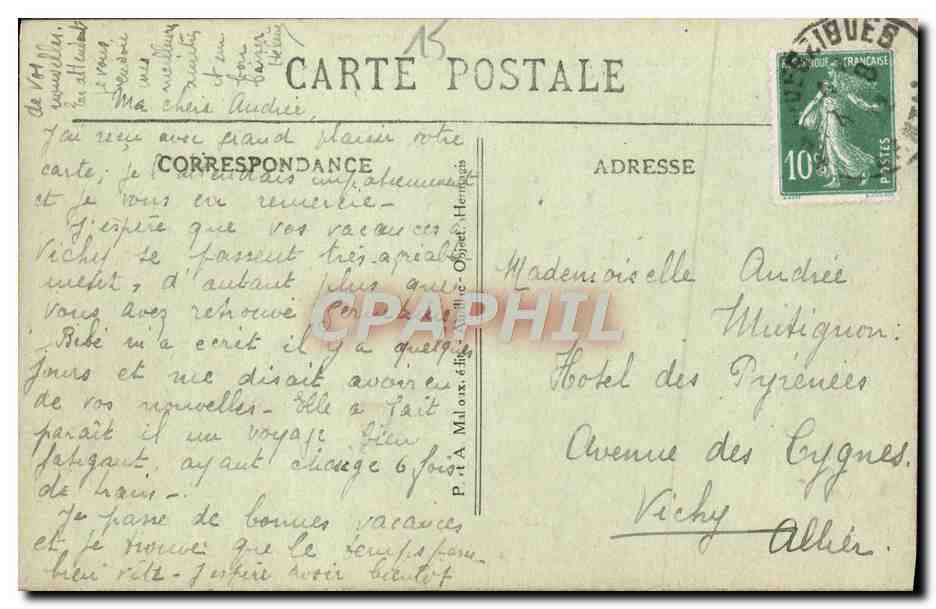 15
CARTE POSTALE
CORRESPONDANCE
ADRESSE
REPUBLIQUE FRANÇAISE
10c
POSTES
P. et A. Malroux, édit. - Aurillac - Object. Hermagis
CPAPHIL
Ma chère Andrée,
J'ai reçu avec grand plaisir votre
carte; je l'attendais impatiemment
et je vous en remercie -
J'espère que vos vacances à
Vichy se passent très agréable
ment, d'autant plus que
vous avez retrouvé Germaine.
Bébé m'a écrit il y a quelques
jours et me disait avoir eu
de vos nouvelles - Elle a fait
paraît il un voyage bien
fatigant, ayant changé 6 fois
de train -
Je passe de bonnes vacances
et je trouve que le temps passe
bien vite - J'espère avoir bientôt
de vos
nouvelles.
En attendant
je vous
envoie
mes
meilleures
amitiés
et un
bon
baiser
Mademoiselle Andrée
Mutignon:
Hôtel des Pyrénées
Avenue des Cygnes.
Vichy
Allier.